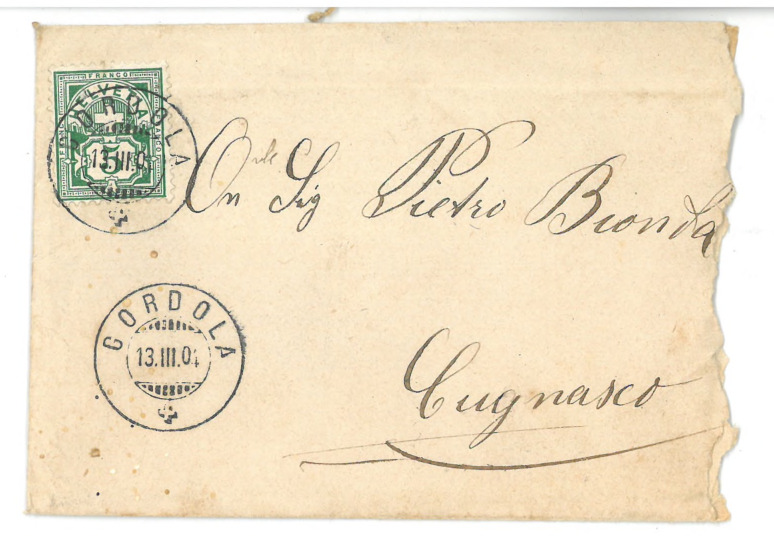 FRANCO
HELVETIA
GORDOLA
13.III.04
5
On.le Sig Pietro Bionda
GORDOLA
13.III.04
Cugnasco